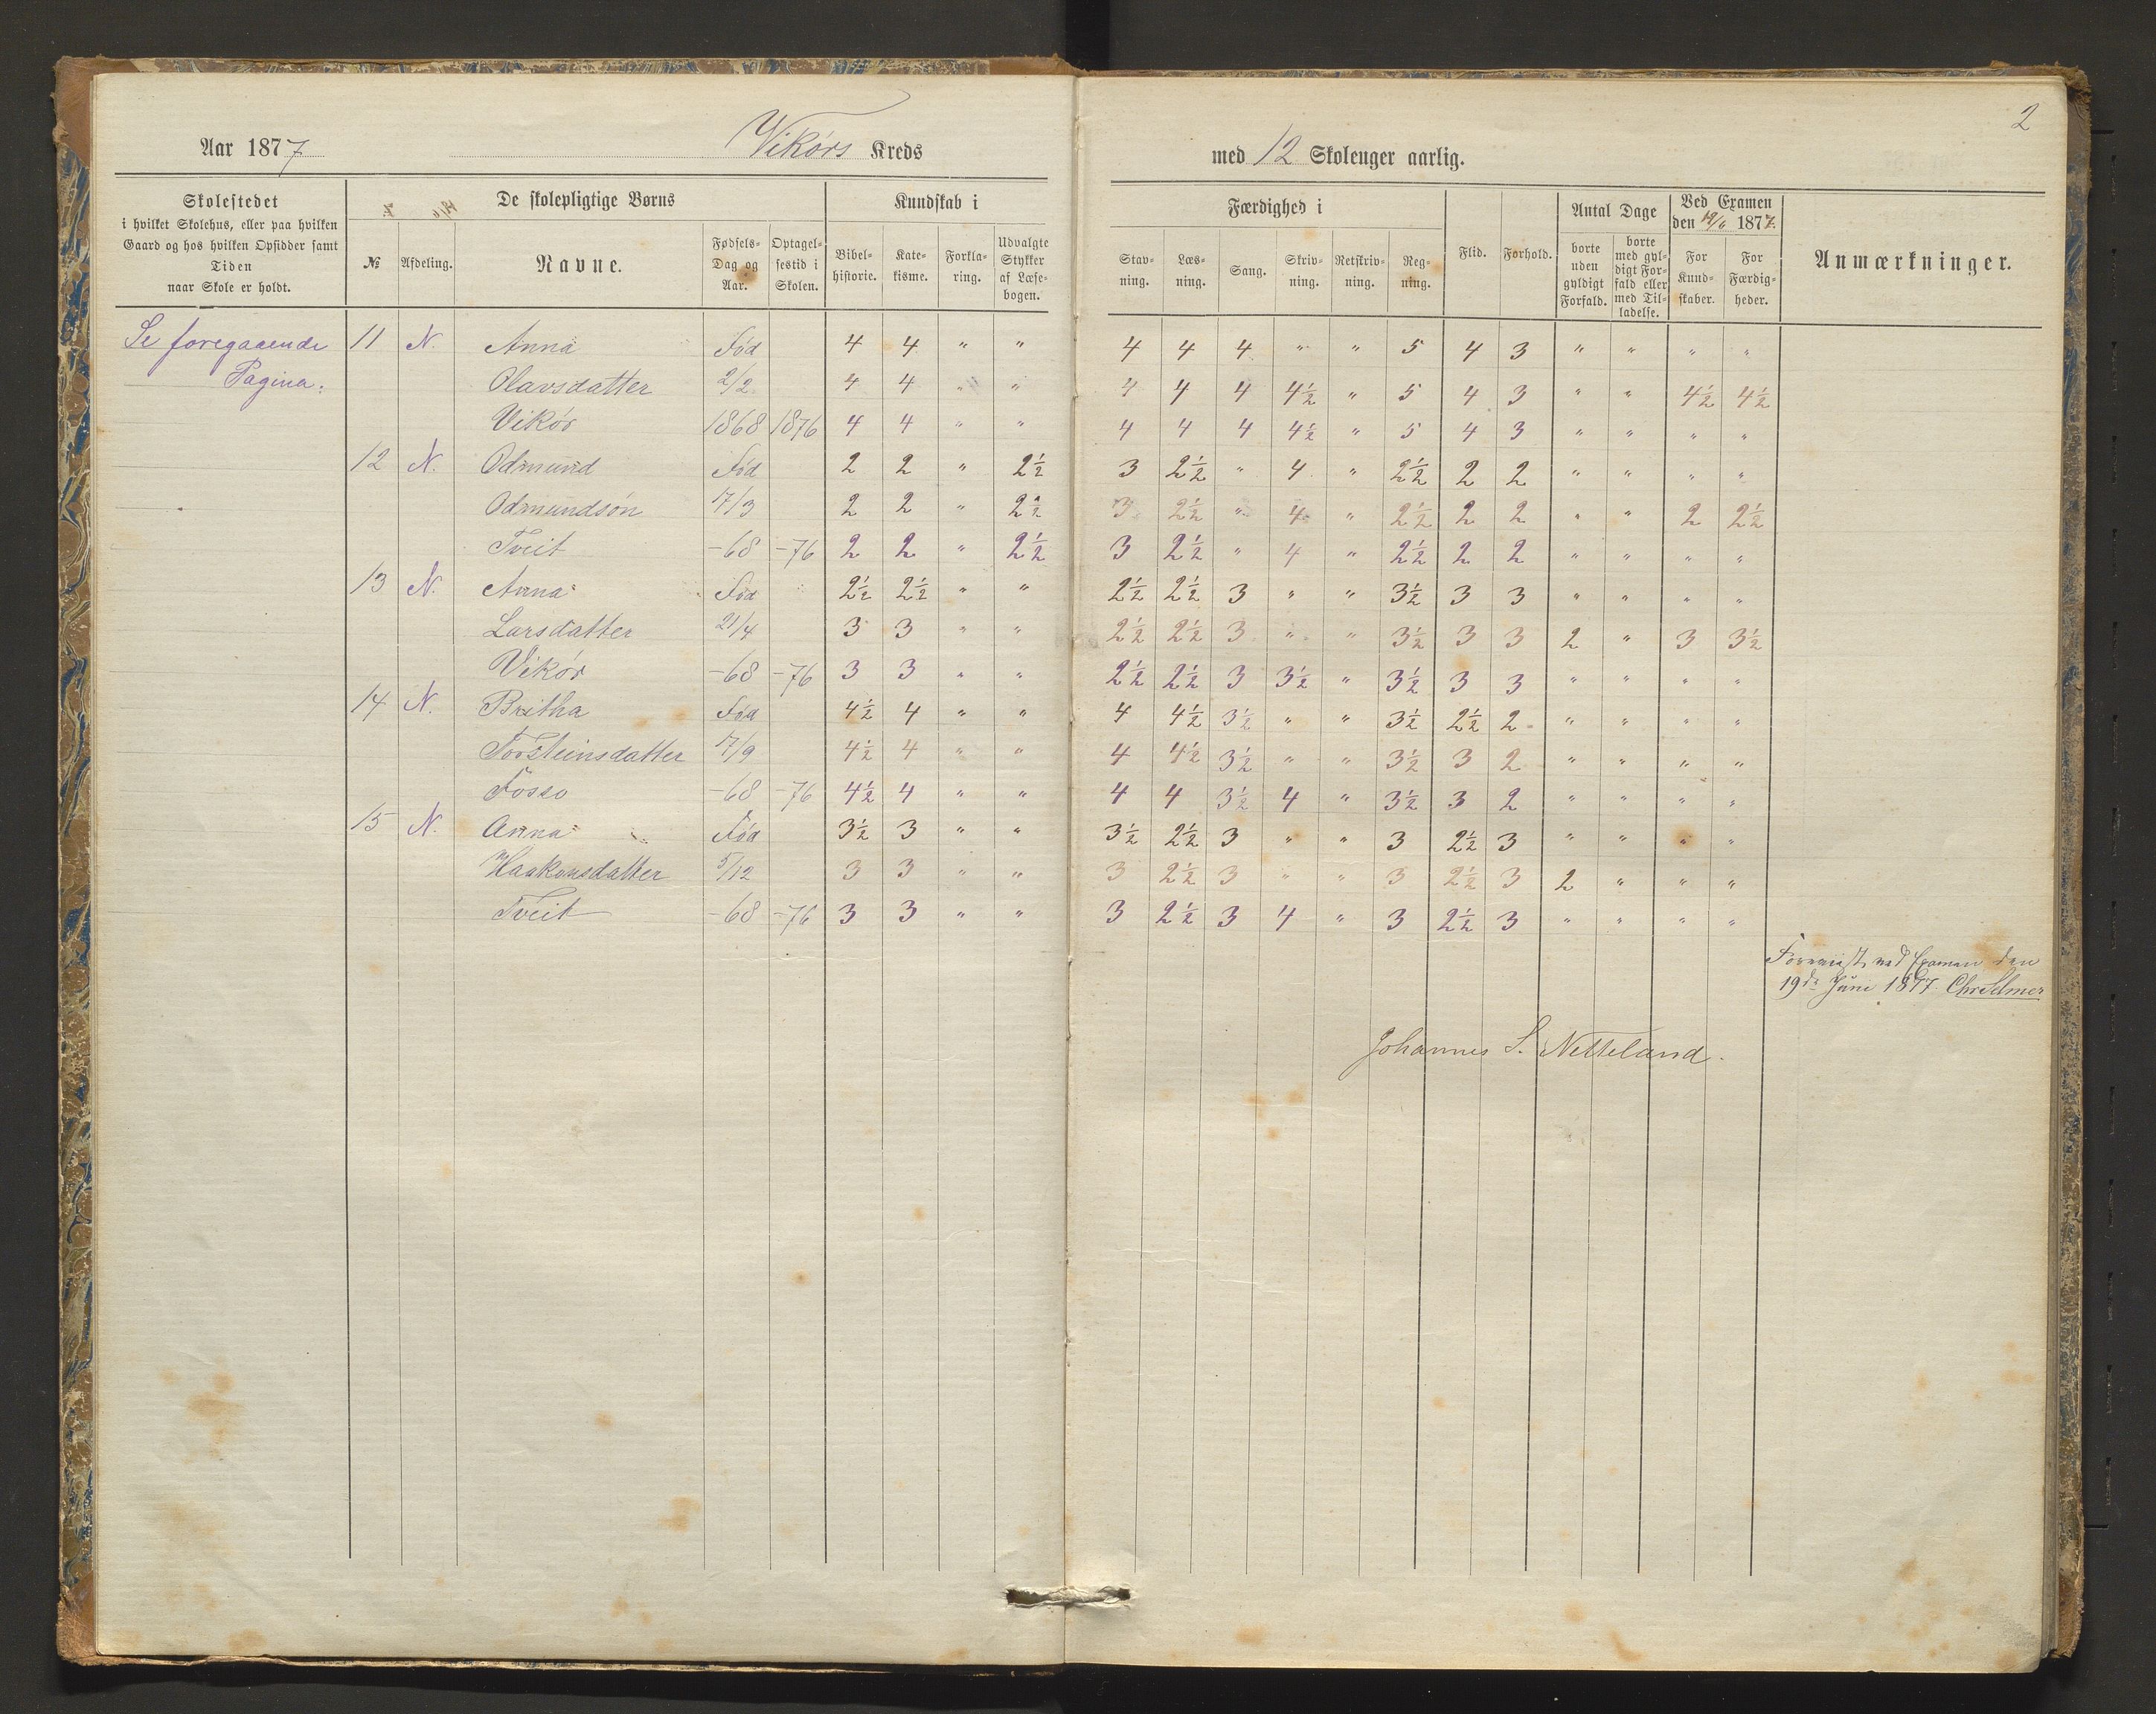 2
Aar 1877 Vikørs Kreds
med 12 Skoleuger aarlig.
Skolestedet
i hvilket Skolehus, eller paa hvilken
Gaard og hos hvilken Opsidder samt
Tiden
naar Skole er holdt.
De skolepligtige Børns
№
Afdeling.
Navne.
Fødsels-
Dag og
Aar.
Optagel-
sestid i
Skolen.
Kundskab i
Bibel-
historie.
Kate-
kisme.
Forkla-
ring.
Udvalgte
Stykker
af Læse-
bogen.
Færdighed i
Stav-
ning.
Læs-
ning.
Sang.
Skriv-
ning.
Retskriv-
ning.
Reg-
ning.
Flid.
Forhold.
Antal Dage
borte
uden
gyldigt
Forfald.
borte
med gyl-
digt For-
fald eller
med Til-
ladelse.
Ved Examen
den 19/6 1877.
For
Kund-
skaber.
For
Færdig-
heder.
Anmærkninger.
Se foregaaende 11 N. Anna Fød 4 4 " " 4 4 4 " " 5 4 3 " " " "
Pagina. Olavsdatter 2/2 4 4 " " 4 4 4 4½ " 5 4 3 " " 4½ 4½
Vikør 1868 1876 4 4 " " 4 4 4 4½ " 5 4 3 " " " "
12 N. Odmund Fød 2 2 " 2½ 3 2½ " 4 " 2½ 2 2 " " " "
Odmundsøn 17/3 2 2 " 2½ 3 2½ " 4 " 2½ 2 2 " " 2 2½
Tveit -68 -76 2 2 " 2½ 3 2½ " 4 " 2½ 2 2 " " " "
13 N. Anna Fød 2½ 2½ " " 2½ 2½ 3 " " 3½ 3 3 " " " "
Larsdatter 21/4 3 3 " " 2½ 2½ 3 " " 3½ 3 3 2 " 3 3½
Vikør -68 -76 3 3 " " 2½ 2½ 3 3½ " 3½ 3 3 " " " "
14 N. Britha Fød 4½ 4 " " 4 4½ 3½ " " 3½ 2½ 2 " " " "
Torsteinsdatter 17/9 4½ 4 " " 4 4½ 3½ " " 3½ 3 2 " " " "
Fosso -68 -76 4½ 4 " " 4 4 3½ 4 " 3½ 3 2 " " " "
15 N. Anna Fød 3½ 3 " " 3½ 2½ 3 " " 3 2½ 3 " " " "
Haakonsdatter 5/12 3 3 " " 3 2½ 3 " " 3 2½ 3 2 " " "
Tveit -68 -76 3 3 " " 3 2½ 3 4 " 3 2½ 3 " " " "
Forevist ved Examen den
19de Juni 1877. Chr Selmer
Johannes S. Netteland.